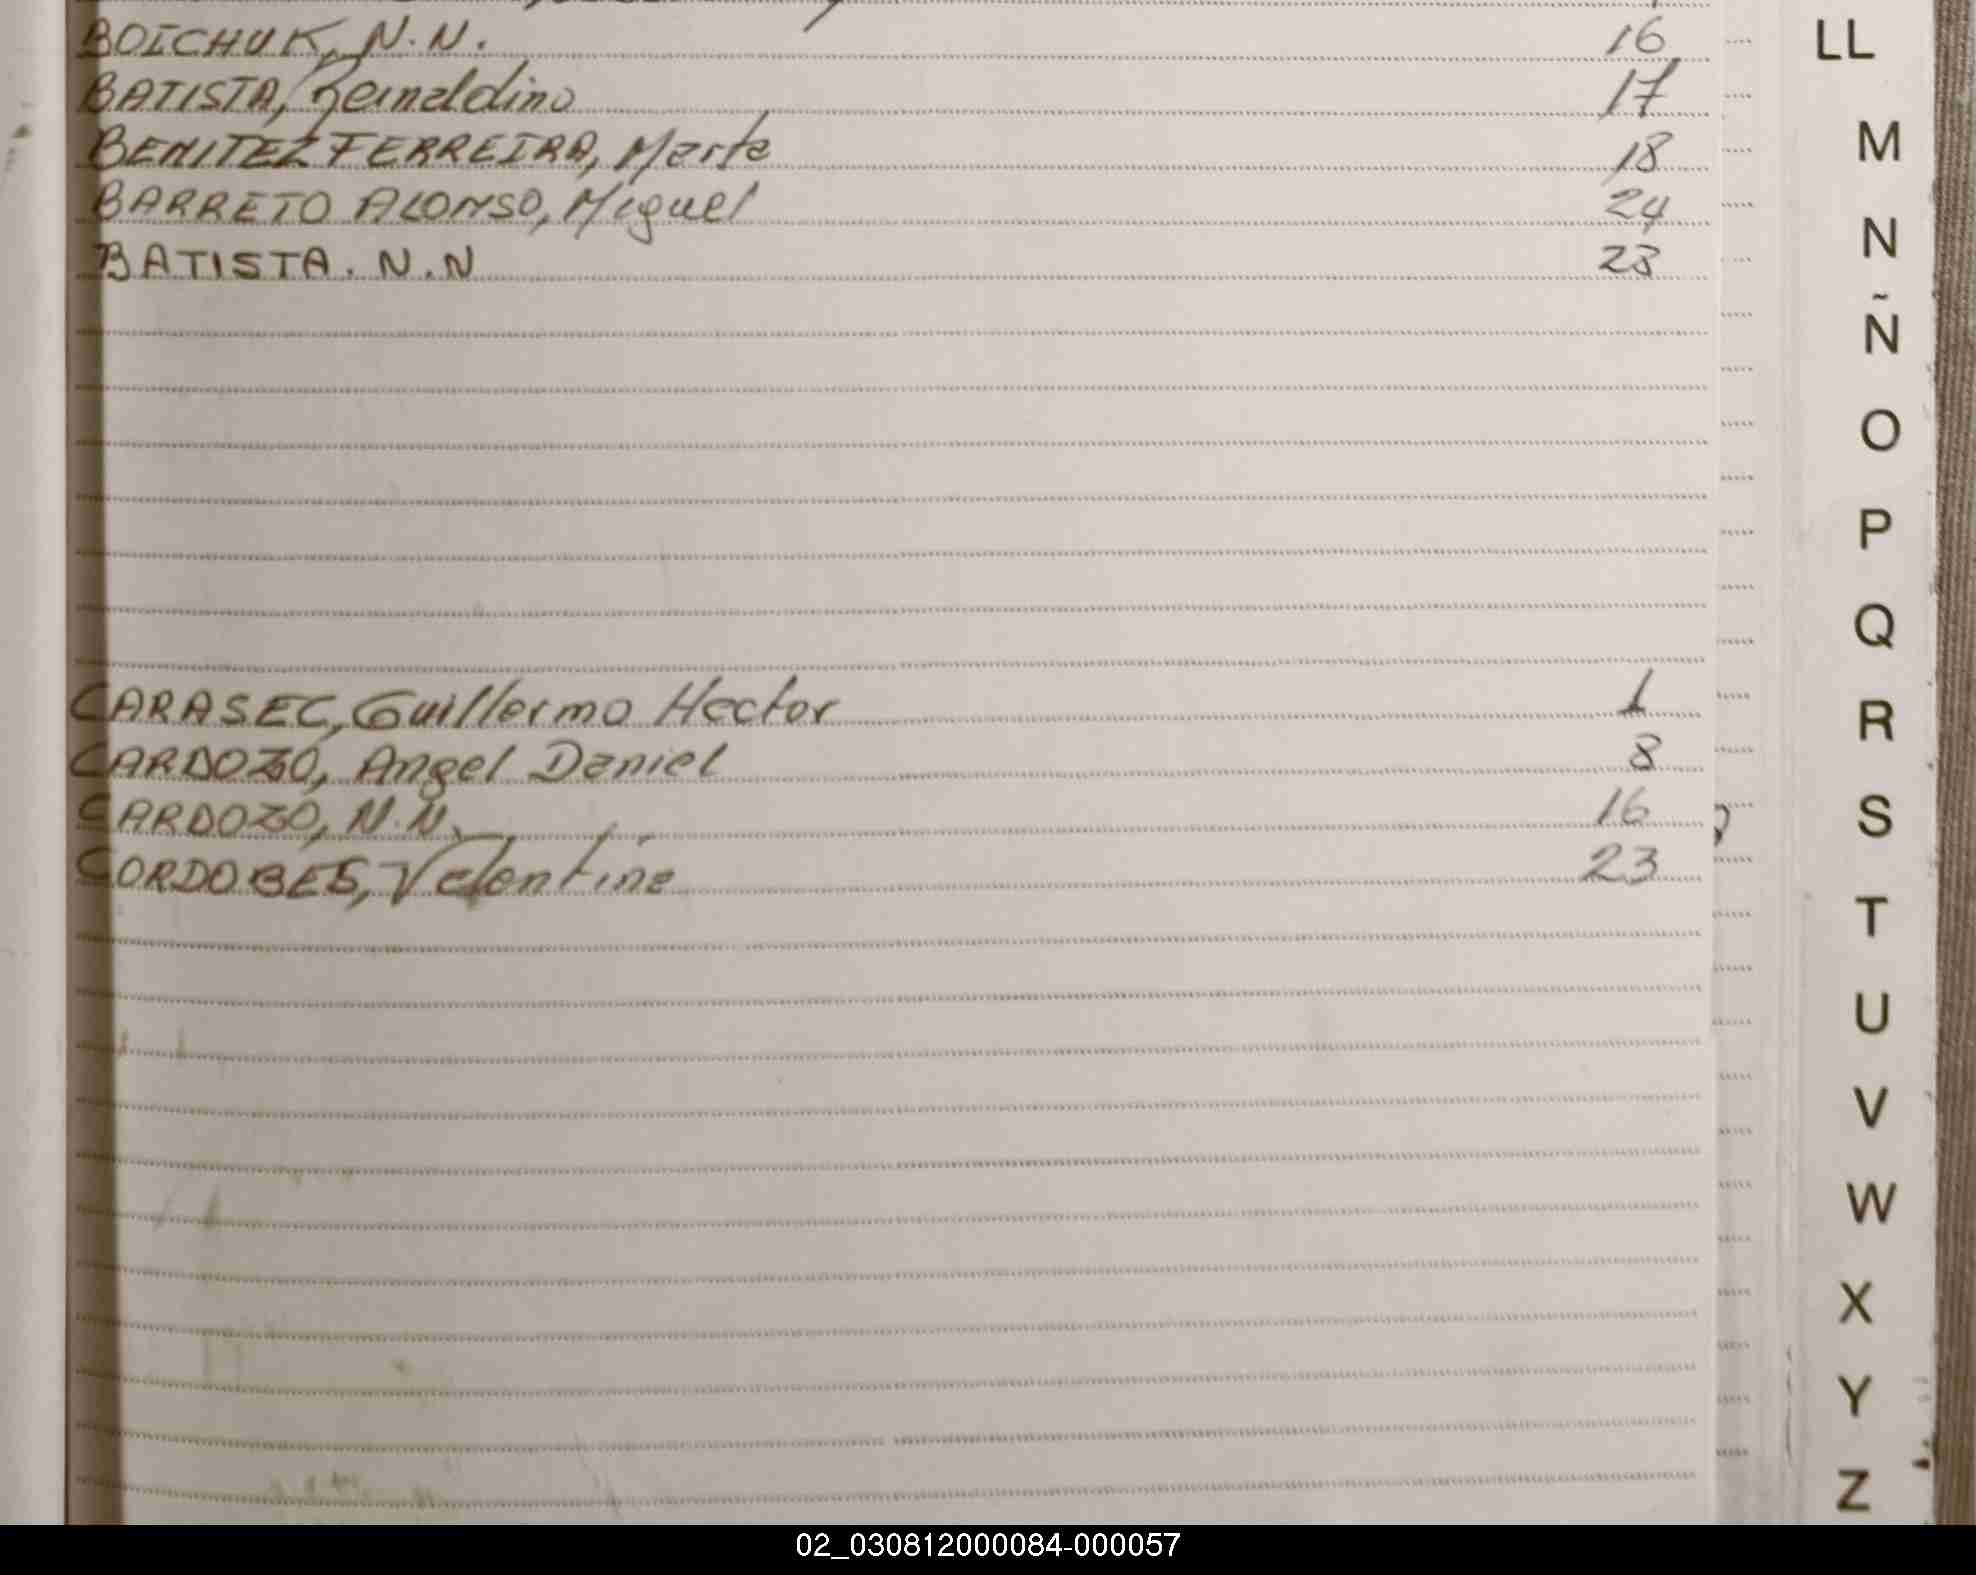 BOICHUK, N.N. 16
BATISTA, Reinaldino 17
BENITEZ FERREIRA, Marta 18
BARRETO ALONSO, Miguel 24
BATISTA. N.N 23
CARASEC, Guillermo Hector 1
CARDOZO, Angel Daniel 8
CARDOZO, N.N. 16
CORDOBES, Valentina 23
LL
M
N
Ñ
O
P
Q
R
S
T
U
V
W
X
Y
Z
02_030812000084-000057